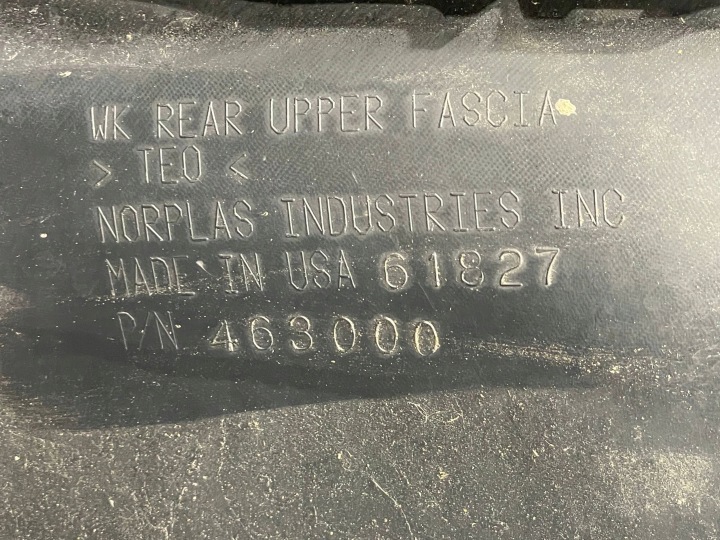 WK REAR UPPER FASCIA
> TEO <
NORPLAS INDUSTRIES INC
MADE IN USA 61827
P/N 463000